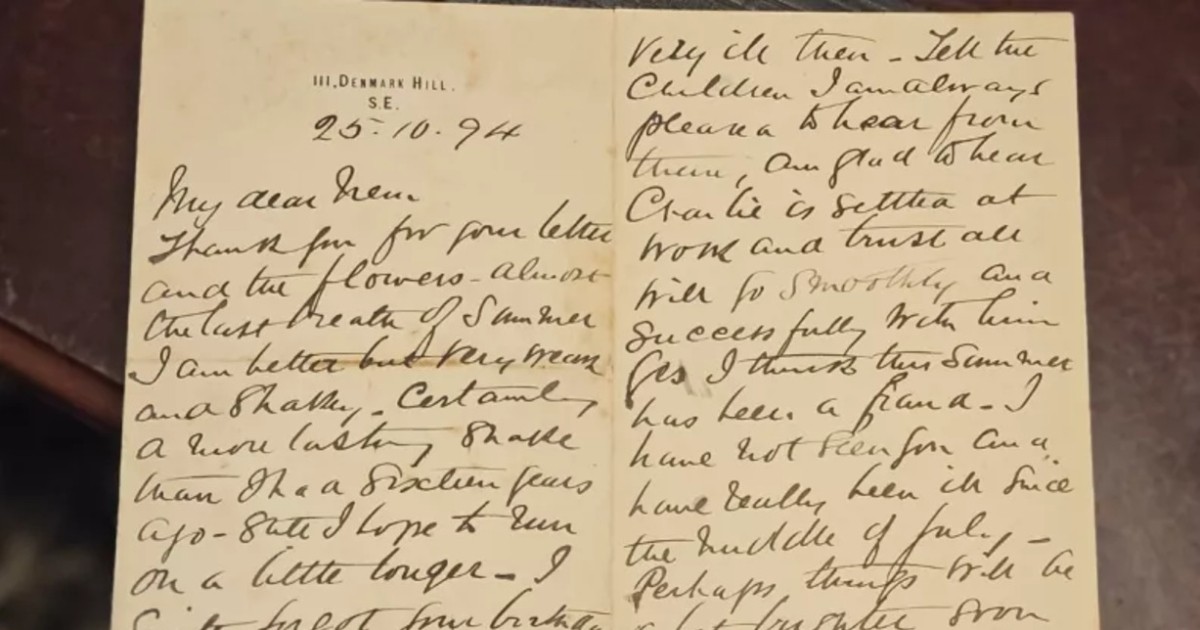 111, DENMARK HILL.
S.E.
25.10.94
My dear Nem
Thank you for your letter
and the flowers - almost
the last breath of Summer
I am better but very weak
and Shaky - Certainly
a more lasting Shake
than I had Sixteen years
ago - Still I hope to run
on a little longer - I
Quite forgot your birthday
Very ill then - Tell the
Children I am always
pleased to hear from
them, am glad to hear
Charlie is settled at
work and trust all
will go Smoothly and
Successfully with him
Yes I think this Summer
has been a fraud - I
have not seen you and
have really been ill Since
the middle of July -
Perhaps things will be
a bit brighter soon